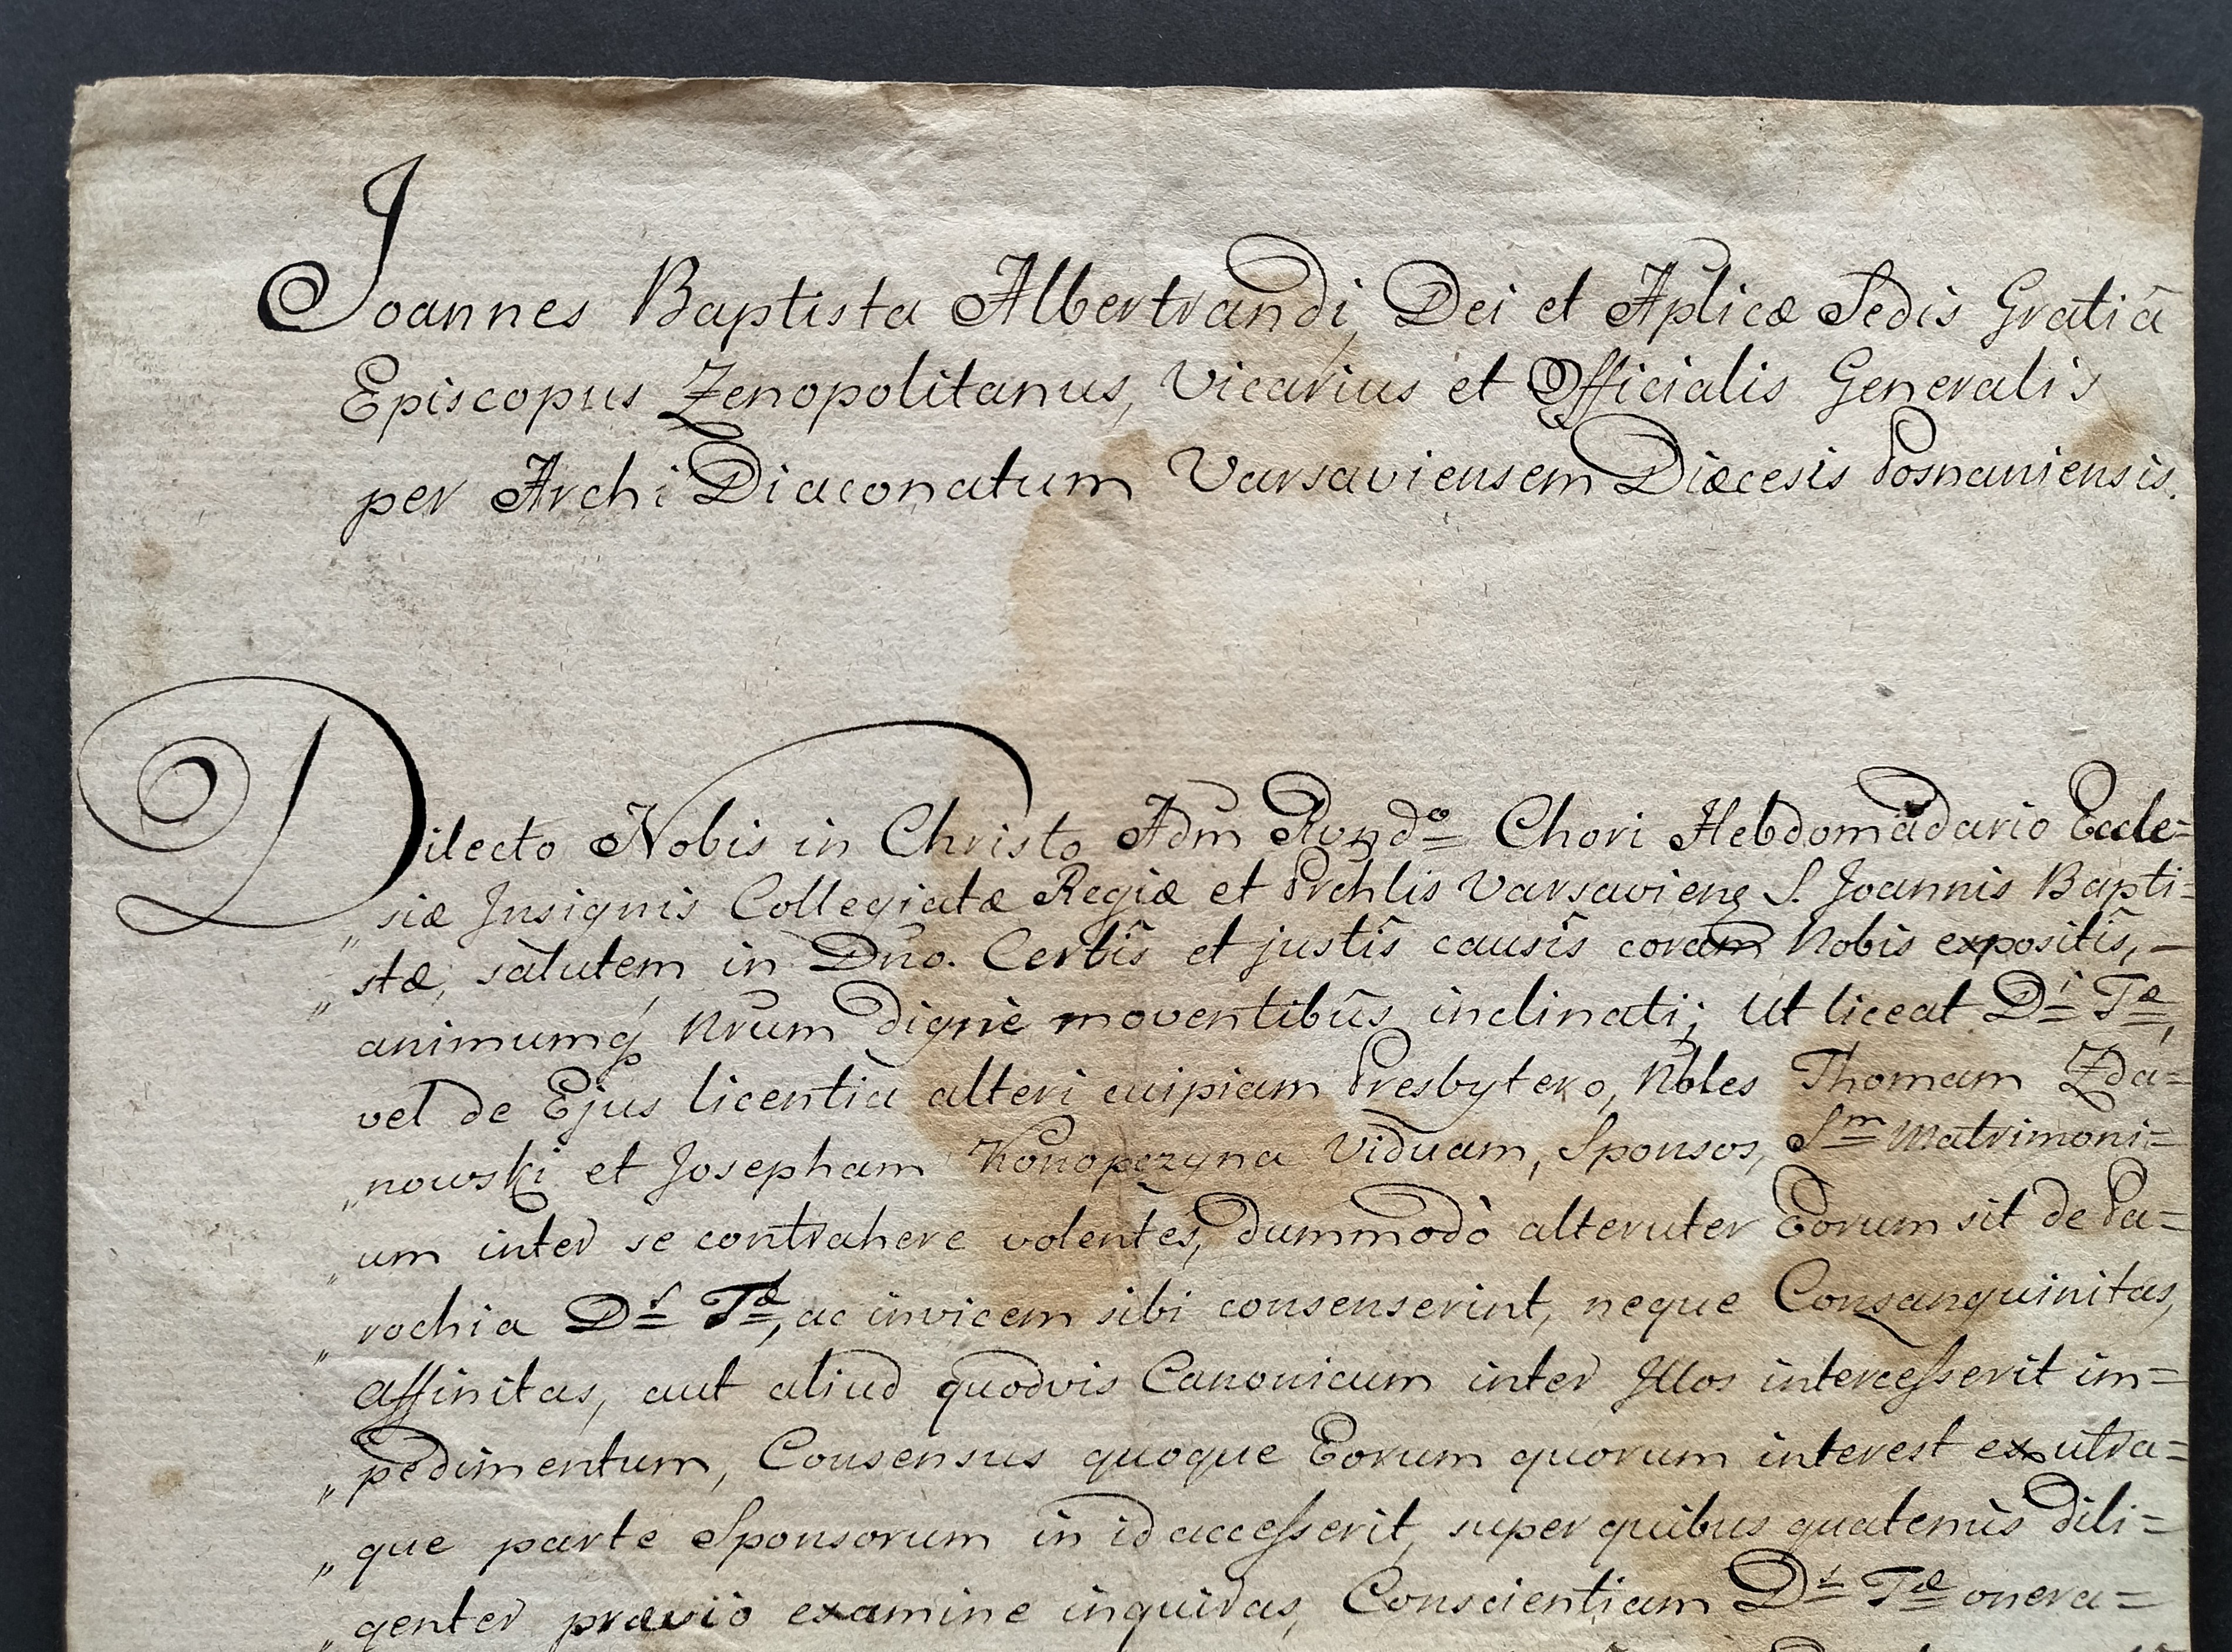 Joannes Baptista Albertrandi, Dei et Aplicæ Sedis Gratiâ
Episcopus Zenopolitanus, Vicarius et Officialis Generalis
per Archi Diaconatum Varsaviensem Diæcesis Posnaniensis.
Dilecto Nobis in Christo Adm Rvndo Chori Hebdomadario Eccle=
„siæ Insignis Collegiatæ Regiæ et Prchlis Varsavien S. Joannis Bapti=
„stæ, salutem in Dno. Certis et justis causis coram Nobis expositis,
animumq Nrum dignè moventibus inclinati; Ut liceat Di Tæ,
vel de Ejus licentia alteri cuipiam Presbytero, Nbles Thomam Zda=
„nowski et Josepham Konopczyna Viduam, Sponsos, Sm Matrimoni=
„um inter se contrahere volentes, dummodò alteruter Eorum sit de Pa=
„rochia Ds Tæ, ac invicem sibi consenserint, neque Consanguinitas,
affinitas, aut aliud quodvis Canonicum inter Illos intercesserit im=
„pedimentum, Consensus quoque Eorum quorum interest ex utra=
„que parte Sponsorum in id accesserit, super quibus quatenùs dili=
„genter prævio examine inquiras, Conscientiam Ds Tæ onera=